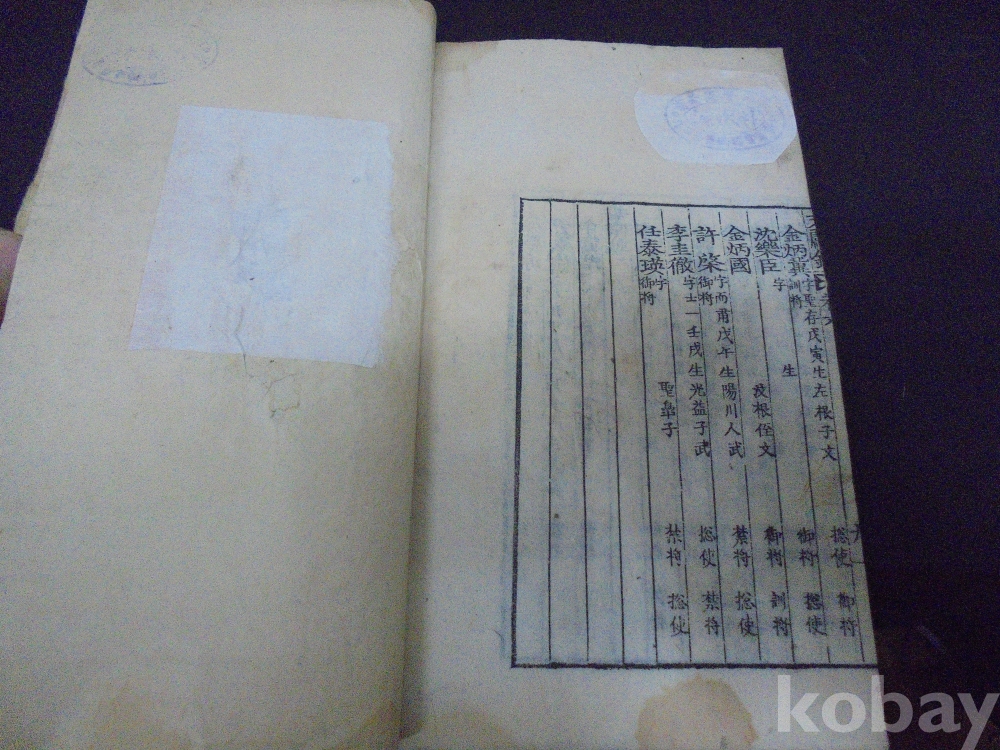 金炳冀 字聖存戊寅生左根子文 捴使 御將
訓將 御將 捴使
沈樂臣 字 生 汶根侄文 御將 訓將
金炳國 禁將 捴使
許棨 字而甫戊午生陽川人武 捴使 禁將
御將
李圭徹 字士一壬戌生光益子武 禁將 捴使
任泰瑛 字 聖皐子
御將
kobay